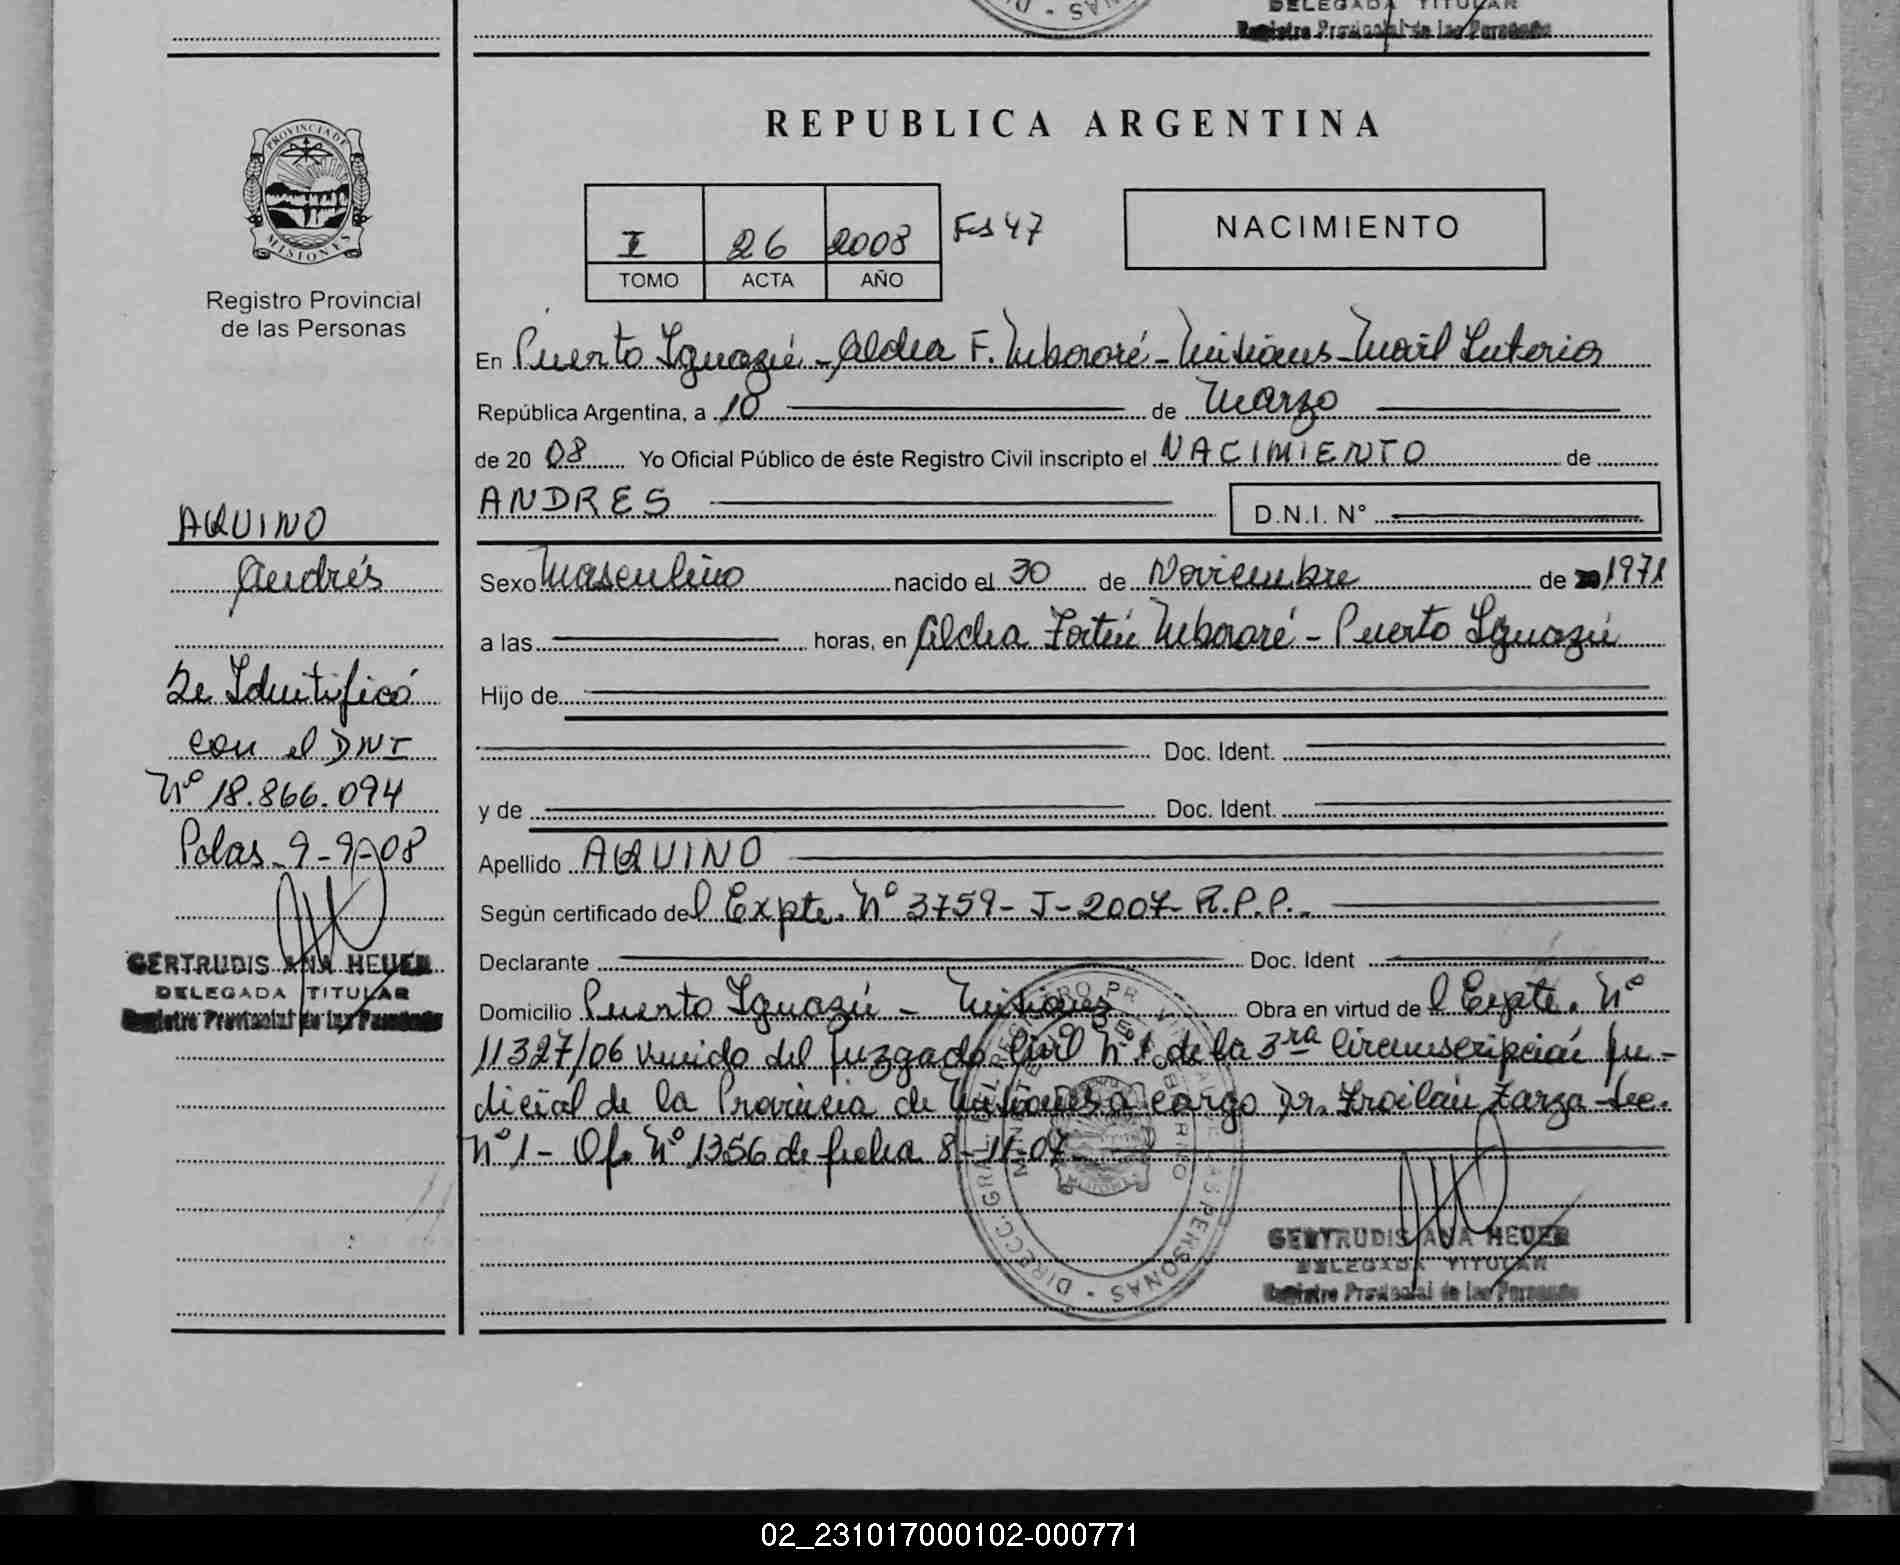 DELEGADA TITULAR
Registro Provincial de las Personas
PROVINCIA DE
MISIONES
Registro Provincial
de las Personas
AQUINO
Andrés
Se Identificó
con el DNI
Nº 18.866.094
Pdas 9-9-08
GERTRUDIS ANA HEUER
DELEGADA TITULAR
Registro Provincial de las Personas
REPUBLICA ARGENTINA
I 26 2008 Fs 47
TOMO ACTA AÑO
NACIMIENTO
En Puerto Iguazú - Aldea F. Mbororé - Misiones - Interior
República Argentina, a 10 de Marzo
de 20 08 Yo Oficial Público de éste Registro Civil inscripto el NACIMIENTO de
ANDRES D.N.I. N°
Sexo Masculino nacido el 30 de Noviembre de 1971
a las horas, en Aldea Fortín Mbororé - Puerto Iguazú
Hijo de
Doc. Ident.
y de Doc. Ident.
Apellido AQUINO
Según certificado del Expte. Nº 3759-J-2007-R.P.P.
Declarante Doc. Ident
Domicilio Puerto Iguazú - Misiones Obra en virtud del Expte. Nº
11327/06 venido del Juzgado Civil Nº 1 de la 3ra Circunscripción Ju-
dicial de la Provincia de Misiones a cargo Dr. Froilán Zarza Sec.
Nº 1 - Of. Nº 1356 de fecha 8-11-07
GERTRUDIS ANA HEUER
DELEGADA TITULAR
Registro Provincial de las Personas
02_231017000102-000771